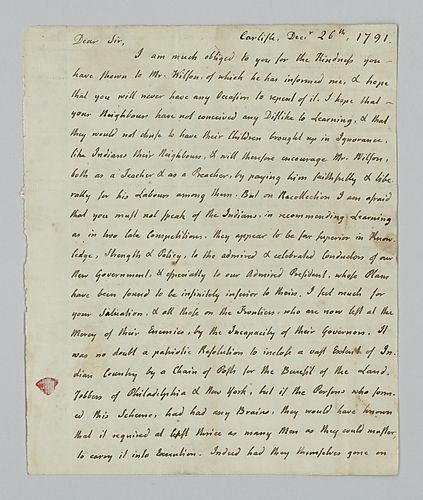 Dear Sir, Carlisle, Decr. 26th, 1791.
I am much obliged to you for the Kindness you
have shown to Mr. Wilson, of which he has informed me, & hope
that you will never have any Occasion to repent of it. I hope that
your Neighbours have not conceived any Dislike to Learning, & that
they would not chuse to have their Children brought up in Ignorance,
like Indians their Neighbours, & will therefore encourage Mr. Wilson,
both as a Teacher & as a Preacher, by paying him faithfully & libe-
rally for his Labours among them. But on Recollection I am afraid
that you must not speak of the Indians, in recommending Learning
as in two late Competitions, they appear to be far superior in Know-
ledge, Strength & Policy, to the admired & celebrated Conductors of our
New Government, & especially to our Admired President, whose Plans
have been found to be infinitely inferior to theirs. I feel much for
your Situation, & all those on the Frontiers, who are now left at the
Mercy of their Enemies, by the Incapacity of their Governors. It
was no doubt a patriotic Resolution to inclose a vast Extent of In-
dian Country by a Chain of Posts for the Benefit of the Land-
Jobbers of Philadelphia & New York, but if the Persons who form-
ed this Scheme, had had any Brains, they would have known
that it required at least thrice as many Men as they could muster,
to carry it into Execution. Indeed had they themselves gone on